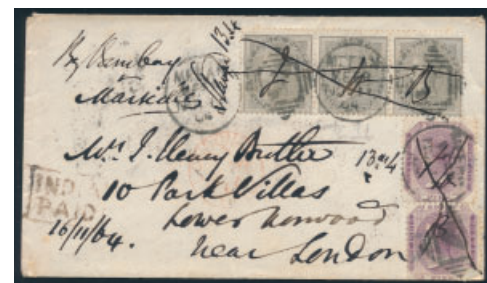 By Bombay
&
Marseilles
Stamps 13a4
Mrs J. Henry Butler
13a4
10 Park Villas
Lower Norwood
near London
INDIA
PAID
16/11/64.